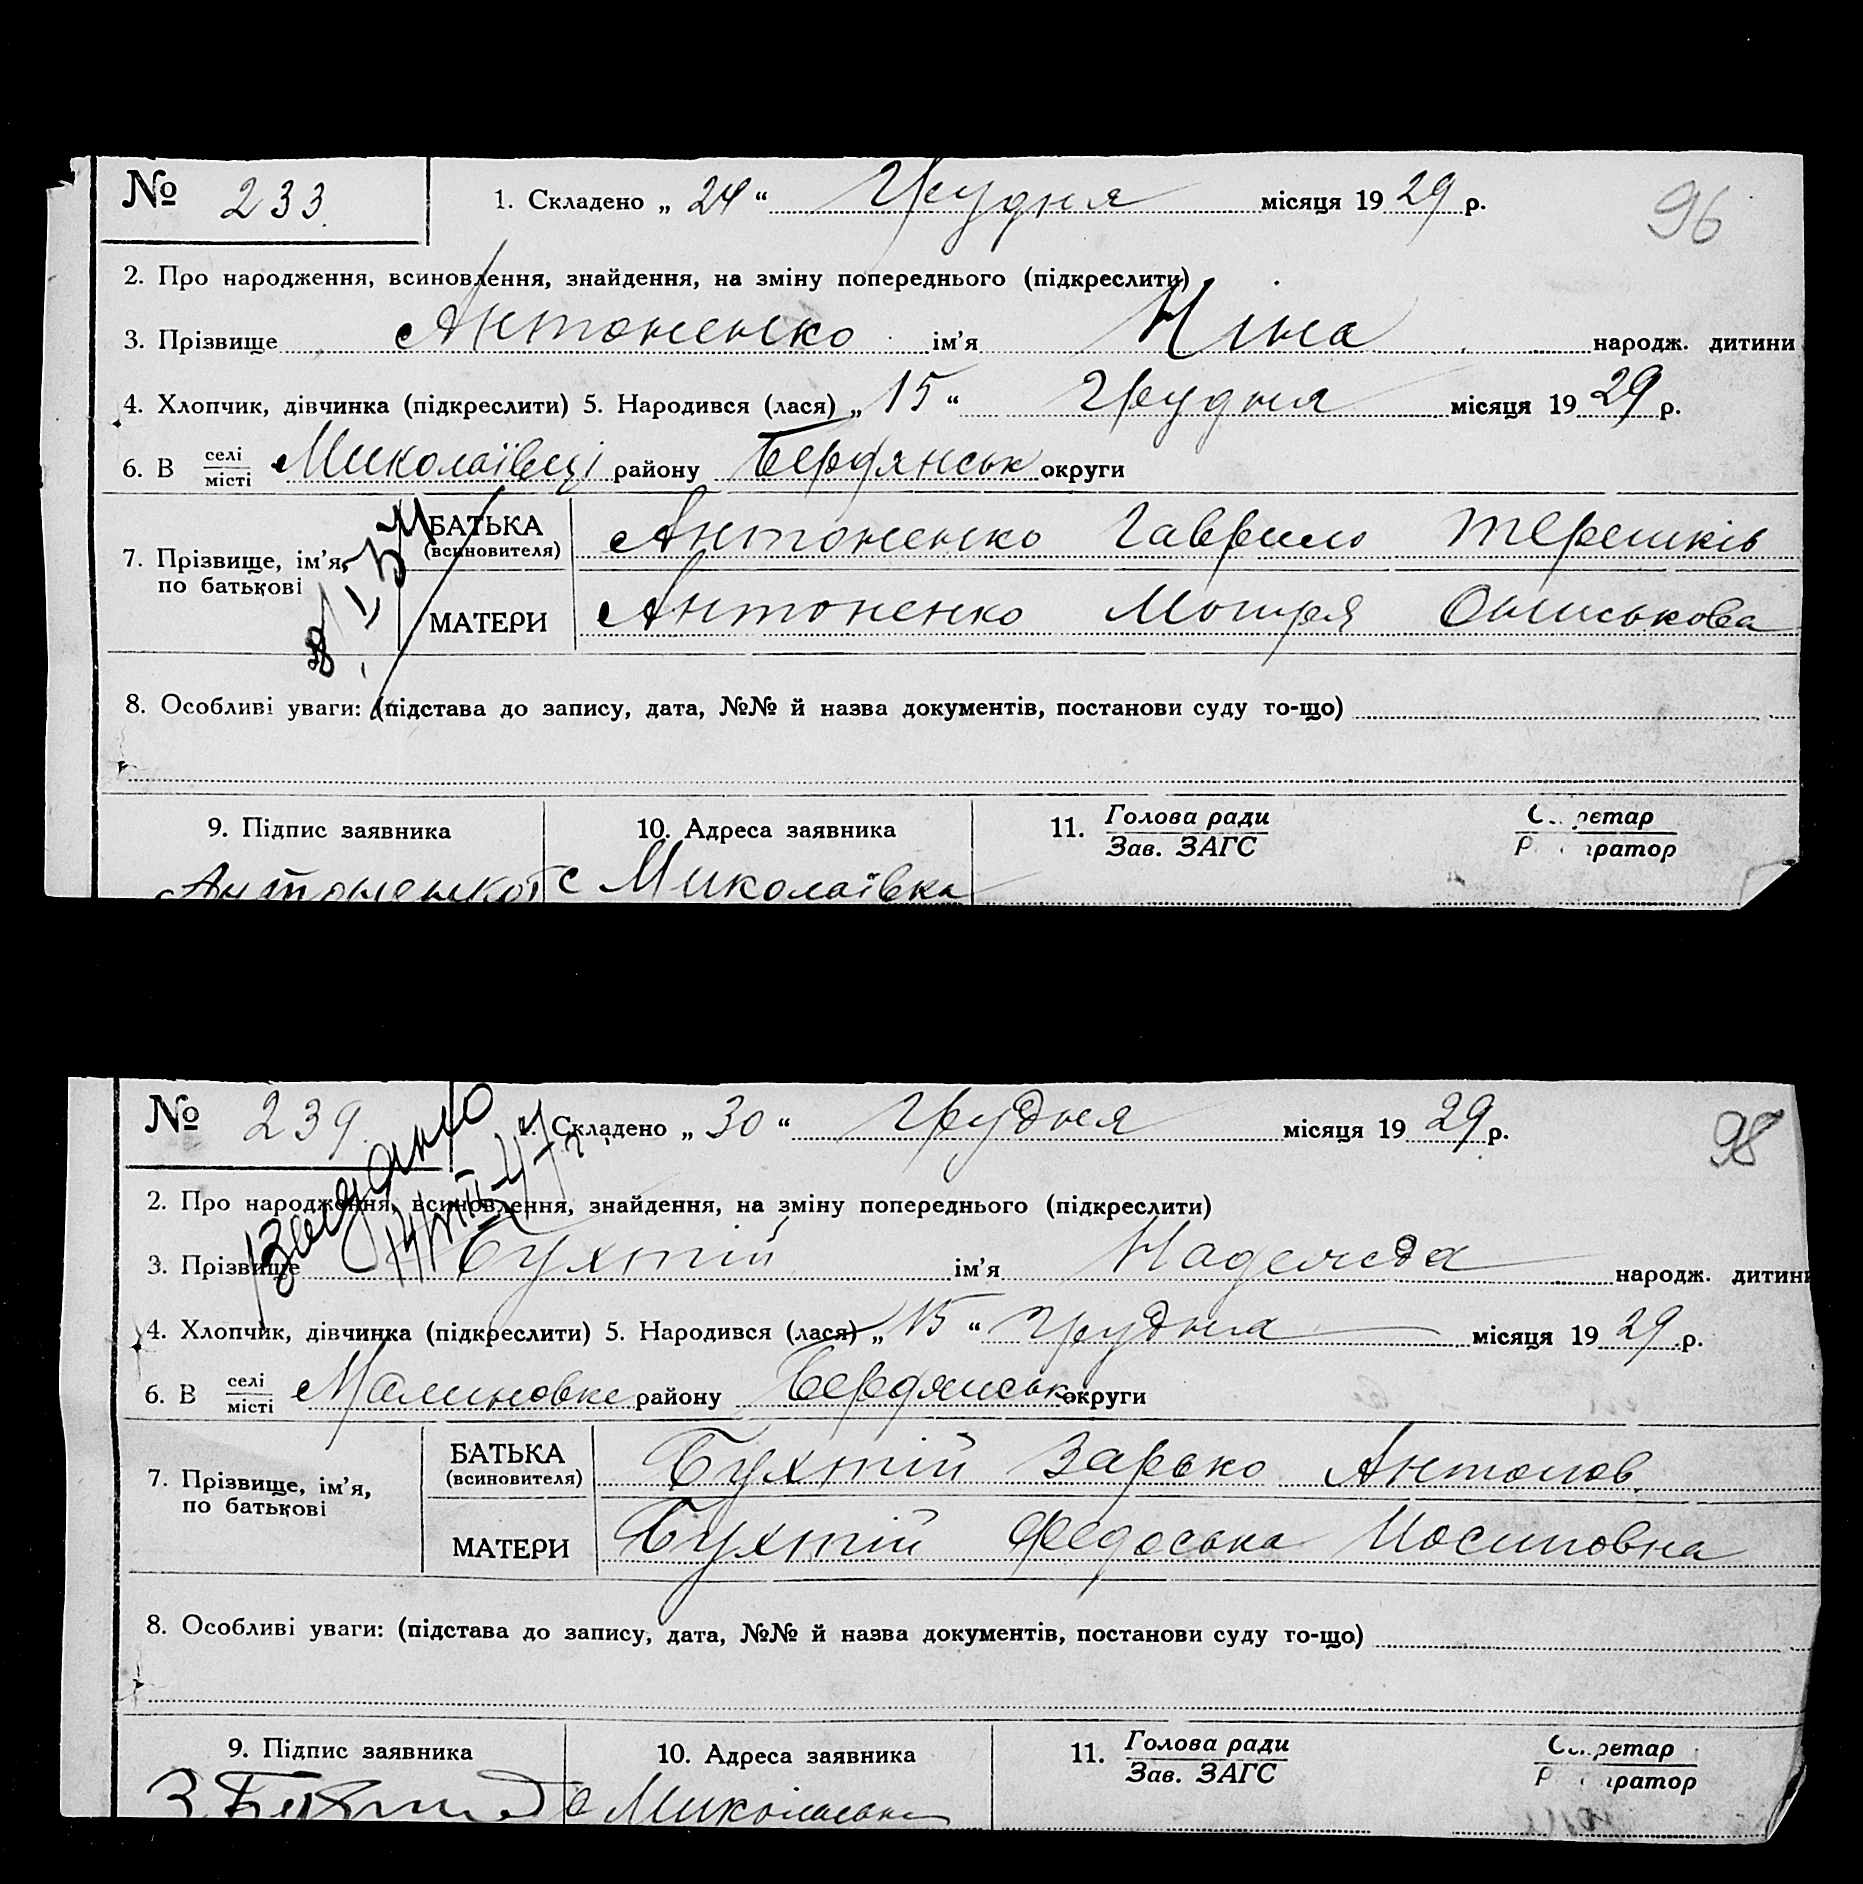 № 233. 1. Складено „ 24 “ Грудня місяця 19 29 р. 96
2. Про народження, всиновлення, знайдення, на зміну попереднього (підкреслити)
3. Прізвище Антоненко ім'я Ніна народж. дитини
4. Хлопчик, дівчинка (підкреслити) 5. Народився (лася) „ 15 “ Грудня місяця 19 29 р.
6. В селі місті Миколаївці району Бердянськ округи
7. Прізвище, ім'я, по батькові
БАТЬКА (всиновителя) Антоненко Гаврило Терешків
МАТЕРИ Антоненко Мотря Ониськова
8. Особливі уваги: (підстава до запису, дата, №№ й назва документів, постанови суду то-що)
9. Підпис заявника 10. Адреса заявника 11. Голова ради Зав. ЗАГС
Антоненко с Миколаївка
№ 239. 1. Складено „ 30 “ Грудня місяця 19 29 р. 98
2. Про народження, всиновлення, знайдення, на зміну попереднього (підкреслити)
3. Прізвище Бухтій ім'я Надежда народж. дитини
4. Хлопчик, дівчинка (підкреслити) 5. Народився (лася) „ 15 “ Грудня місяця 19 29 р.
6. В селі місті Малиновке району Бердянськ округи
7. Прізвище, ім'я, по батькові
БАТЬКА (всиновителя) Бухтій Зарько Антонов
МАТЕРИ Бухтій Федоська Иосиповна
8. Особливі уваги: (підстава до запису, дата, №№ й назва документів, постанови суду то-що)
9. Підпис заявника 10. Адреса заявника 11. Голова ради Зав. ЗАГС